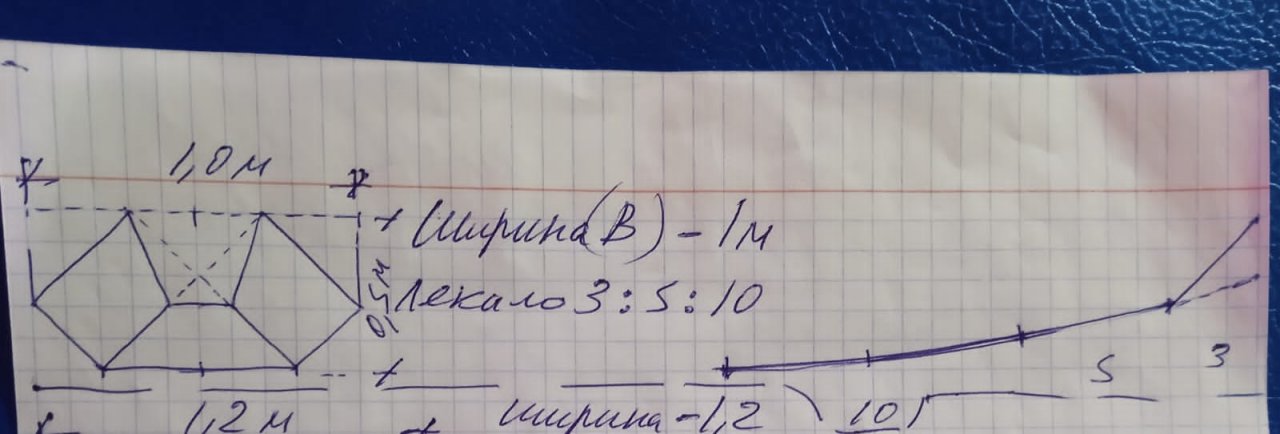 1,0 м
Ширина(В) - 1 м
0,5 м
Лекало 3:5:10
5 3
1,2 м
ширина - 1,2
10